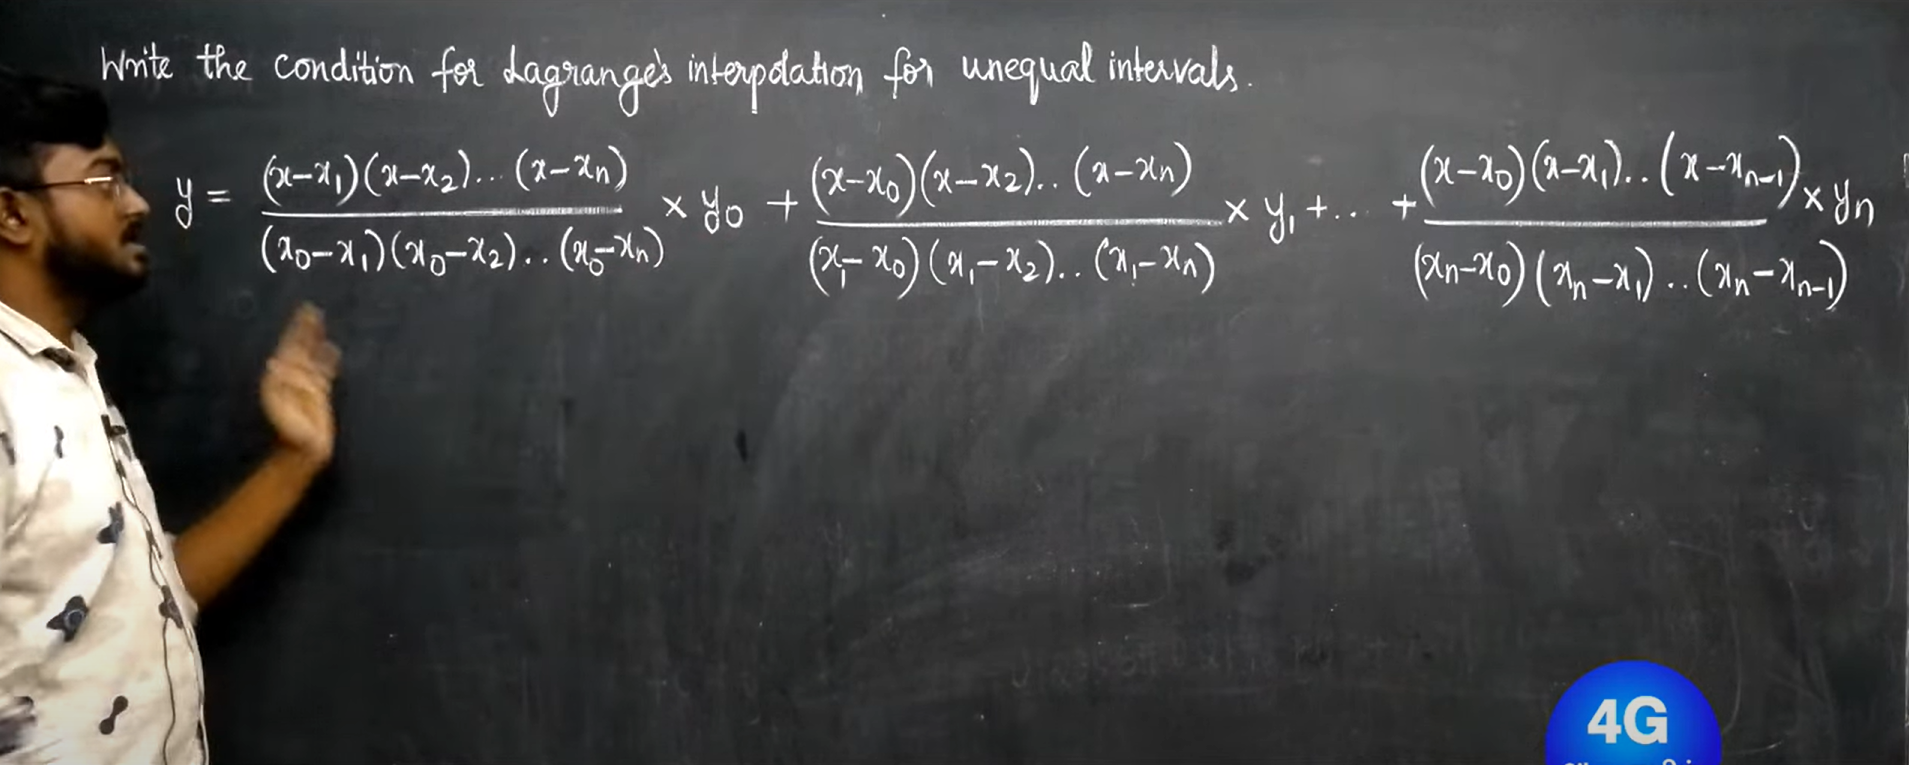 Write the condition for Lagrange's interpolation for unequal intervals.
y = (x-x₁)(x-x₂)...(x-xₙ) / (x₀-x₁)(x₀-x₂)..(x₀-xₙ) × y₀ + (x-x₀)(x-x₂)..(x-xₙ) / (x₁-x₀)(x₁-x₂)..(x₁-xₙ) × y₁ +... + (x-x₀)(x-x₁)..(x-xₙ₋₁) / (xₙ-x₀)(xₙ-x₁)..(xₙ-xₙ₋₁) × yₙ
4G